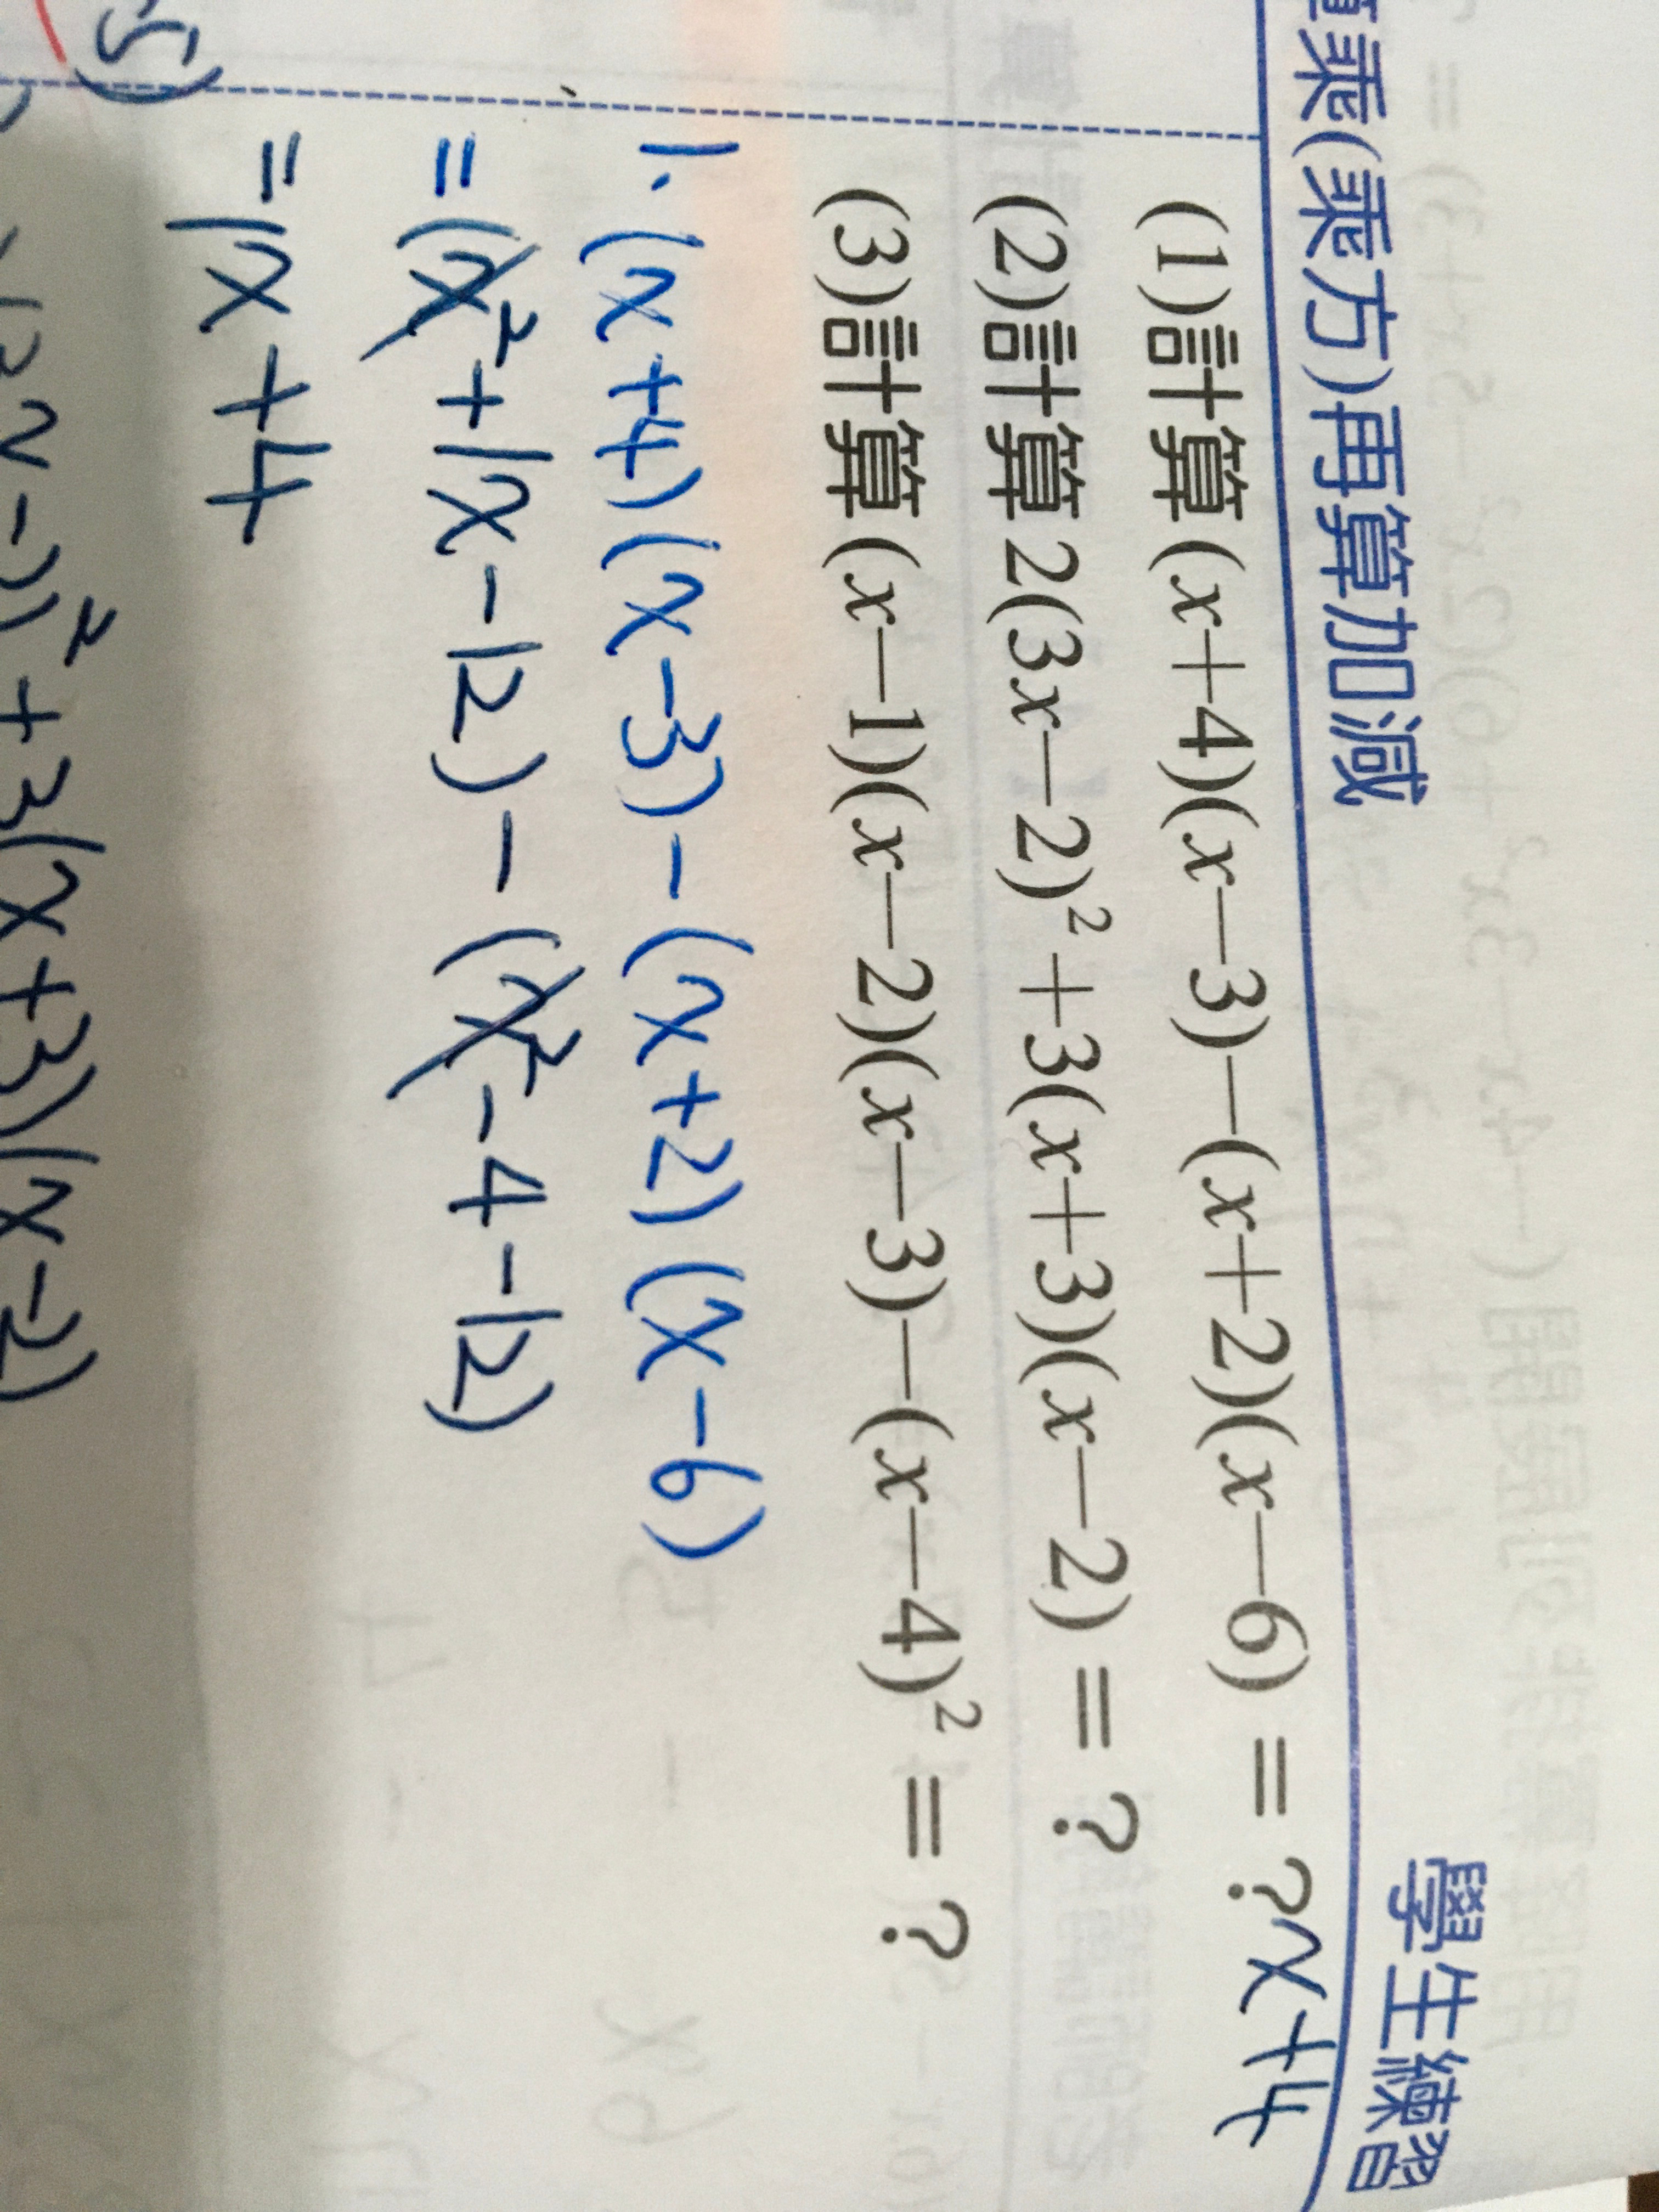 乘(乘方)再算加減
學生練習
(1)計算(x+4)(x-3)-(x+2)(x-6) = ? x+4
(2)計算2(3x-2)²+3(x+3)(x-2) = ?
(3)計算(x-1)(x-2)(x-3)-(x-4)² = ?
1. (x+4)(x-3)-(x+2)(x-6)
=(x²+1x-12)-(x²-4-12)
=1x+4
-2)²+3(x+3)(x-2)